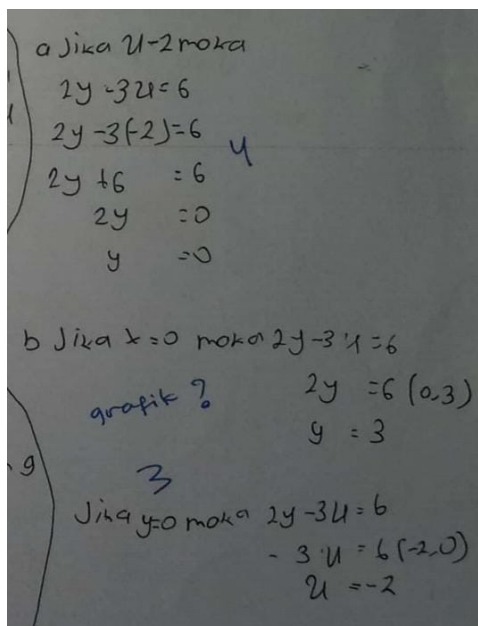 a Jika x-2 maka
2y -3x=6
2y -3(-2)=6
4
2y +6 =6
2y =0
y =0
b Jika x=0 maka 2y-3x=6
2y =6 (0,3)
grafik ?
y =3
3
Jika y=0 maka 2y-3x=6
-3x=6(-2,0)
x=-2